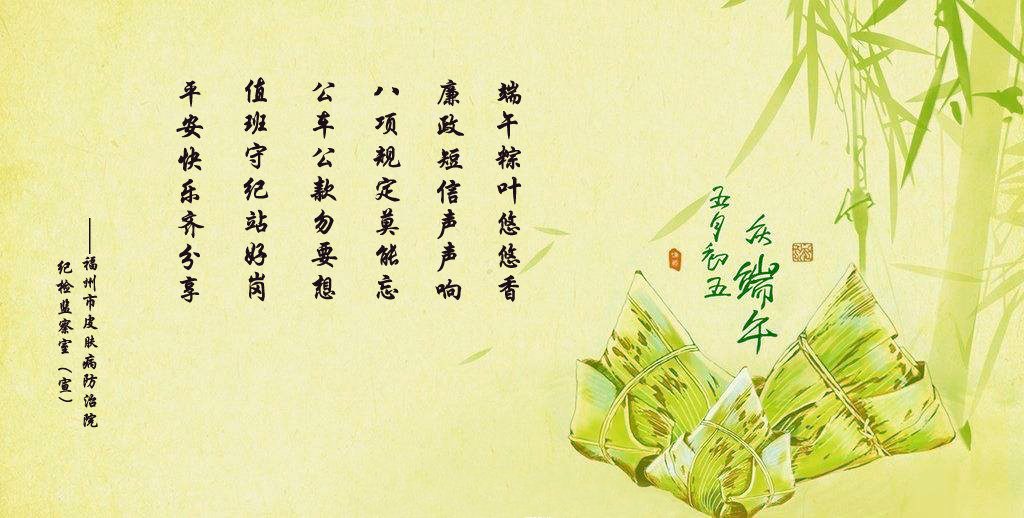 庆端午
五月初五
端午粽叶悠悠香
廉政短信声声响
八项规定莫能忘
公车公款勿要想
值班守纪站好岗
平安快乐齐分享
——福州市皮肤病防治院
纪检监察室（宣）